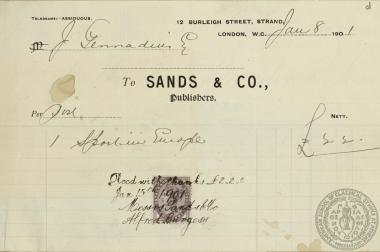 TELEGRAMS: ASSIDUOUS.
12 BURLEIGH STREET, STRAND,
LONDON, W.C. Jan 8 1901
M J. Gennadius E
To SANDS & CO.,
Publishers.
Per Post NETT.
1 Sport in Europe £2 2 .
Recd with thanks £2.2.0
Jan 15th 1901
Messrs Sands & Co
Alfred Burgess